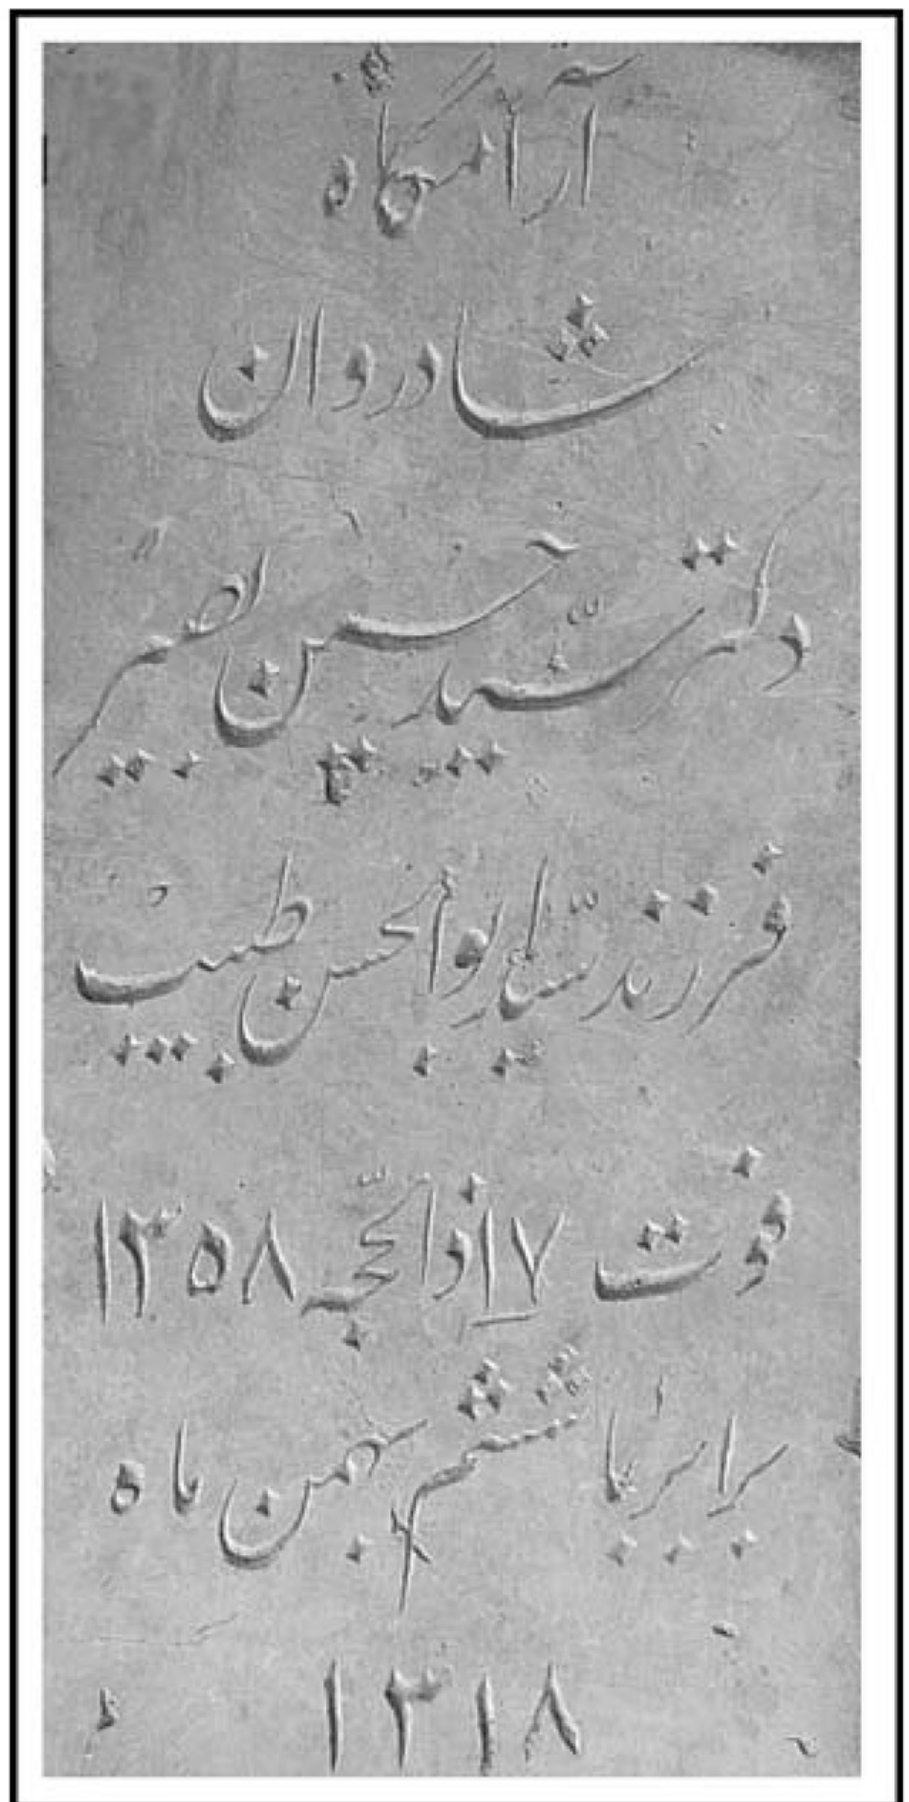 آرامگاه
شادروان
دکتر سیّد حسین بصیر
فرزند سیّد ابوالحسن طبیب
فوت ۱۷ ذالحجّه ۱۳۵۸
برابر با ششم بهمن ماه
۱۳۱۸